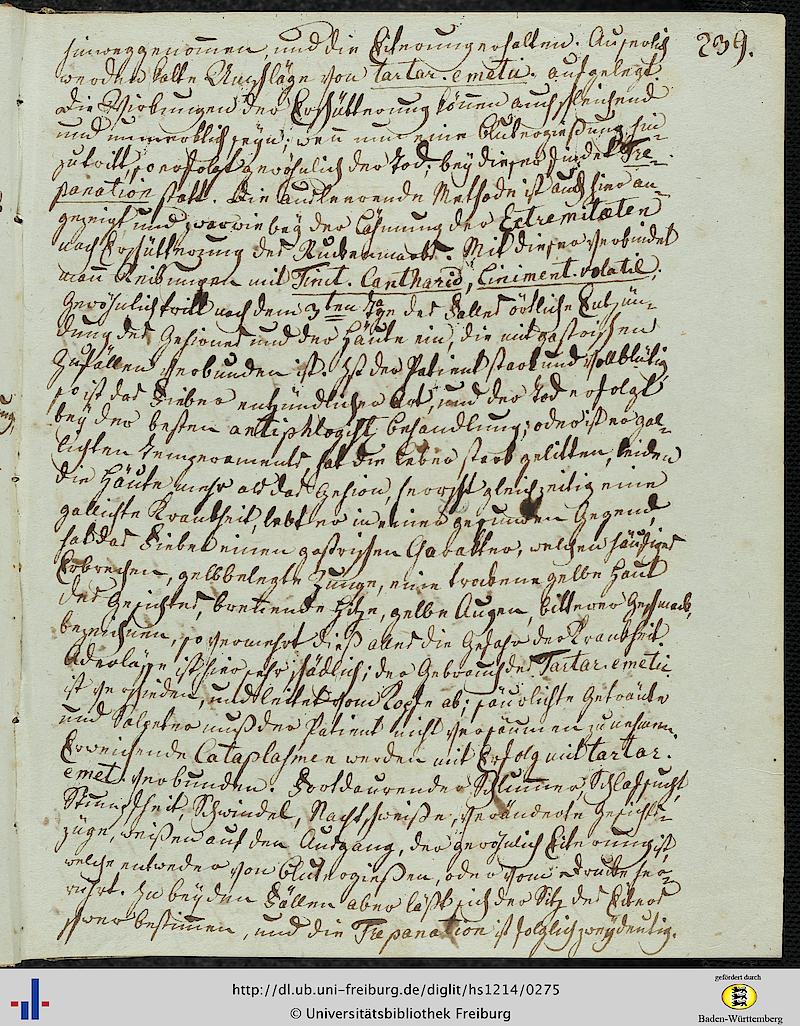 239.
hinweggenommen, und die Eiterung erhalten. Äuserlich
werden kalte Umschläge von tartar. emetic. aufgelegt.
Die Wirkungen der Erschütterung können auch schleichend
und unmerklich seyn; wenn nun eine Blutergießung hin-
zutritt, so erfolgt gewöhnlich der Tod; bey dieser findet Tre-
panation statt. Die ausleerende Methode ist auch hier an-
gezeigt und zwar wie bey der Lähmung der Extremitæten
nach Erschütterung des Rückenmarks. Mit dieser verbindet
man Reibungen mit Tinct. Cantharid, Liniment. volatile.
Gewöhnlich tritt nach dem 3ten Tge des Falles örtliche Entzün-
dung des Gehirnes und der Häute ein, die mit gastrischen
Zufällen verbunden ist. Ist der Patient stark und vollblütig
so ist das Fieber entzündlicher Art, und der Tod erfolgt
bey der besten antiphlogist Behandlung; oder ist er gal-
lichten Temperaments, hat die Leber stark gelitten, leiden
die Häute mehr als das Gehirn, herrscht gleichzeitig eine
gallichte Krankheit, lebt er in einer Gegend,
hat das Fieber einen gastrischen Charakter, welchen häufiges
Erbrechen, gelbbelegte Zunge, eine trockene gelbe Haut
des Gesichtes, brennende Hitze, gelbe Augen, bitterer Geschmack,
bezeichnen, so vermehrt dieß alles die Gefahr der Krankheit.
Aderlässe ist hier sehr schädlich; der Gebrauch des Tartar. emetic.
ist verschieden, und leitet vom Kopfe ab; säurlichte Getränke
und Salpeter muß der Patient nicht versäumen zu nehmen.
Erweichende Cataplasmen werden mit Erfolg mit tartar.
emet. verbunden. Fortdaurender Schlummer, Schlafsucht,
Stumpfheit, Schwindel, Nachtschweiße, veränderte Gesichts-
züge, weißen auf den Ausgang, der gewöhnlich Eiterung ist,
welche entweder von Blutergießen, oder vom Drucke her-
rührt. In beyden Fällen aber läßt sich der Sitz des Eiters
schwer bestimmen, und die Trepanation ist folglich zweydeutig.
http://dl.ub.uni-freiburg.de/diglit/hs1214/0275
© Universitätsbibliothek Freiburg
gefördert durch
Baden-Württemberg